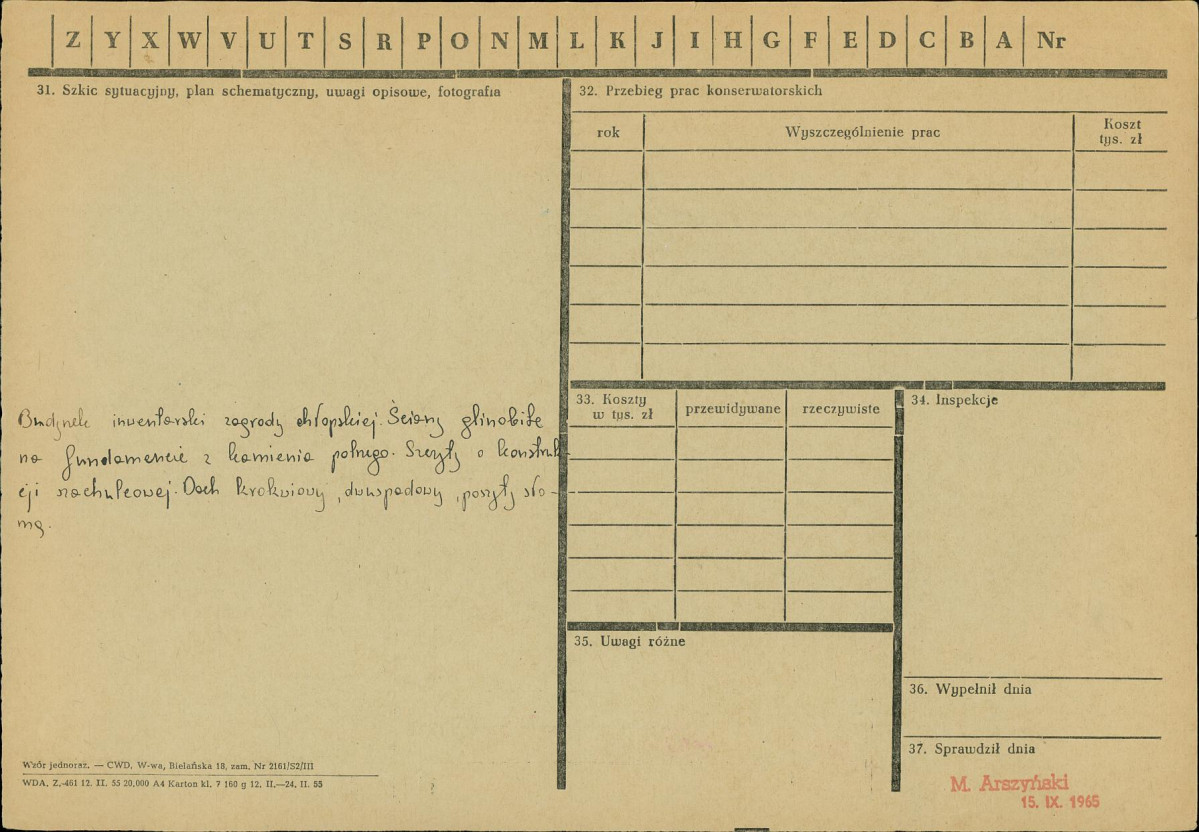 Z Y X W V U T S R P O N M L K J I H G F E D C B A Nr
31. Szkic sytuacyjny, plan schematyczny, uwagi opisowe, fotografia
Budynek inwentarski zagrody chłopskiej. Ściany glinobite
na fundamencie z kamienia polnego. Szczyty o konstruk
cji szachulcowej. Dach krokwiowy, dwuspadowy, poszyty sło-
mą.
Wzór jednoraz. — CWD, W-wa, Bielańska 18, zam. Nr 2161/S2/III
WDA. Z.-461 12. II. 55 20.000 A4 Karton kl. 7 160 g 12. II.—24. II. 55
32. Przebieg prac konserwatorskich
rok Wyszczególnienie prac Koszt
tys. zł
33. Koszty
w tys. zł przewidywane rzeczywiste
34. Inspekcje
35. Uwagi różne
36. Wypełnił dnia
37. Sprawdził dnia
M. Arszyński
15. IX. 1965